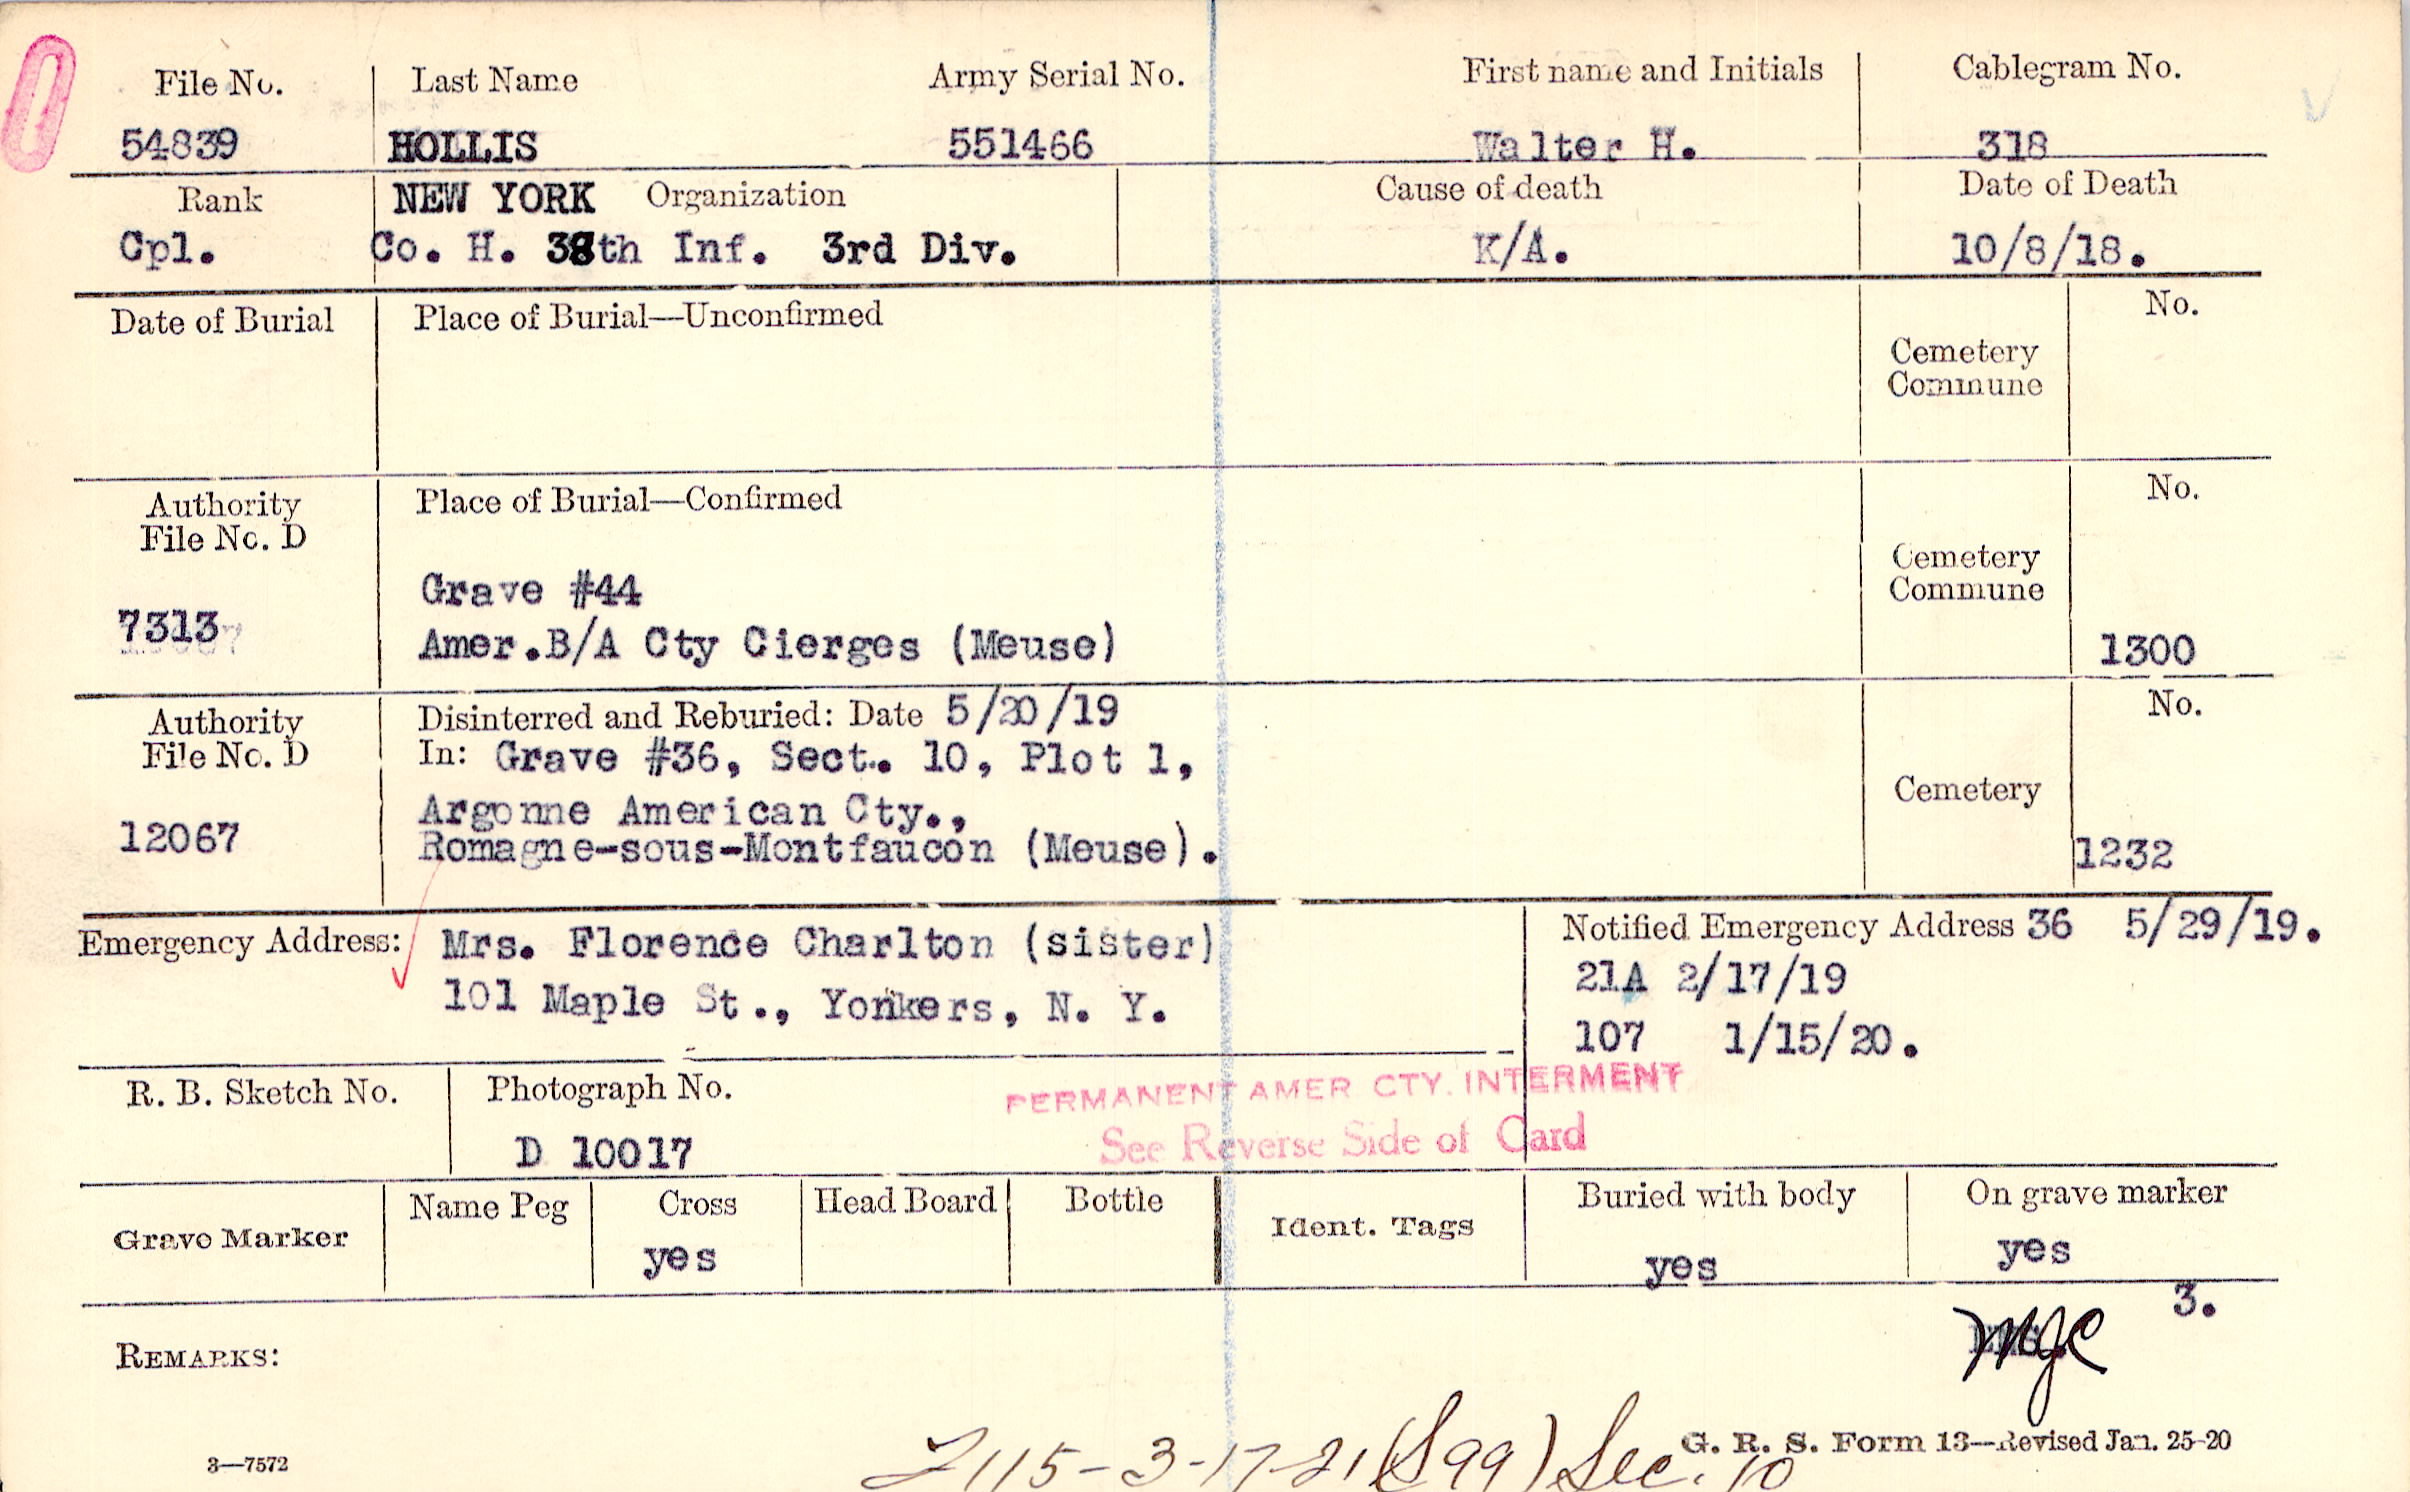 File No. Last Name Army Serial No. First name and Initials Cablegram No.
54839 HOLLIS 551466 Walter H. 318
Rank NEW YORK Organization Cause of death Date of Death
Cpl. Co. H. 38th Inf. 3rd Div. K/A. 10/8/18.
Date of Burial Place of Burial—Unconfirmed No.
Cemetery
Commune
Authority Place of Burial—Confirmed No.
File No. D
Cemetery
Commune
Grave #44
7313 Amer.B/A Cty Cierges (Meuse) 1300
Authority Disinterred and Reburied: Date 5/20/19 No.
File No. D In: Grave #36, Sect. 10, Plot 1,
Cemetery
Argonne American Cty.,
12067 Romagne-sous-Montfaucon (Meuse). 1232
Emergency Address: Mrs. Florence Charlton (sister) Notified Emergency Address 36 5/29/19.
101 Maple St., Yonkers, N. Y. 21A 2/17/19
107 1/15/20.
R. B. Sketch No. Photograph No. PERMANENT AMER CTY. INTERMENT
D 10017 See Reverse Side of Card
Grave Marker Name Peg Cross Head Board Bottle Ident. Tags Buried with body On grave marker
yes yes yes
3.
REMARKS: MJC
3—7572 2115-3-17-21 (S99) Sec. 10 G. R. S. Form 13—Revised Jan. 25-20